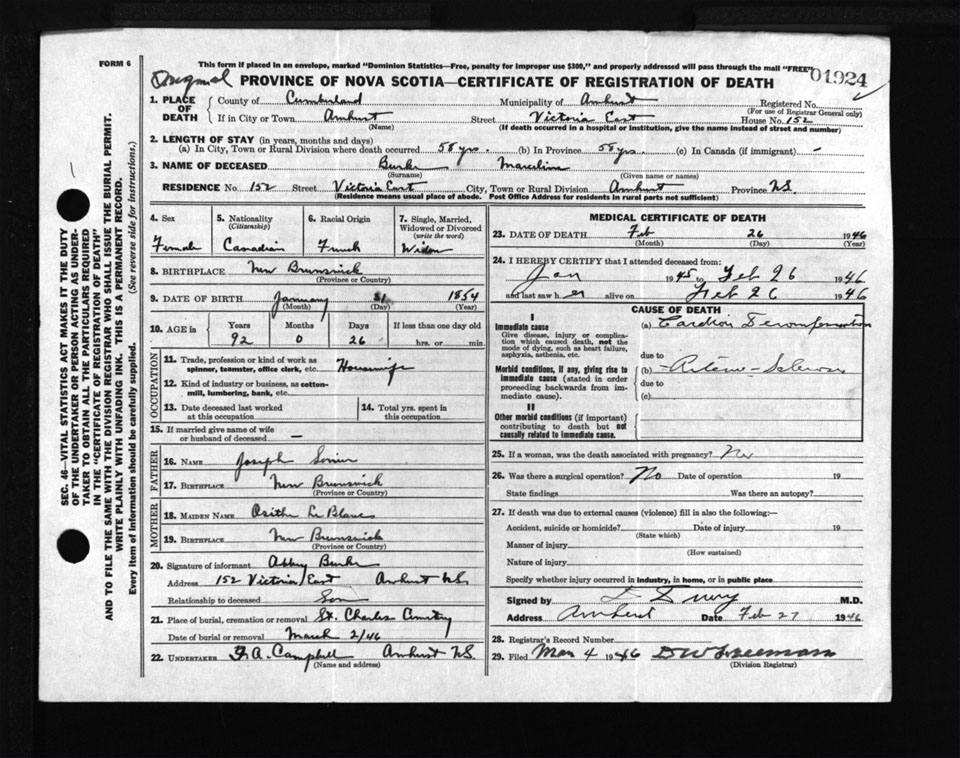 FORM 6
This form if placed in an envelope, marked "Dominion Statistics—Free, penalty for improper use $300," and properly addressed will pass through the mail "FREE"
Original
01924
PROVINCE OF NOVA SCOTIA—CERTIFICATE OF REGISTRATION OF DEATH
1. PLACE OF DEATH County of Cumberland Municipality of Amherst Registered No.
(For use of Registrar General only)
If in City or Town Amherst Street Victoria East House No. 152
(Name) (If death occurred in a hospital or institution, give the name instead of street and number)
2. LENGTH OF STAY (in years, months and days)
(a) In City, Town or Rural Division where death occurred 58 yrs. (b) In Province 58 yrs. (c) In Canada (if immigrant) —
3. NAME OF DECEASED Burke Marceline
(Surname) (Given name or names)
RESIDENCE No. 152 Street Victoria East City, Town or Rural Division Amherst Province N.S.
(Residence means usual place of abode. Post Office Address for residents in rural parts not sufficient)
4. Sex
Female
5. Nationality
(Citizenship)
Canadian
6. Racial Origin
French
7. Single, Married, Widowed or Divorced
(write the word)
Widow
8. BIRTHPLACE New Brunswick
(Province or Country)
9. DATE OF BIRTH January 31 1854
(Month) (Day) (Year)
10. AGE in Years Months Days If less than one day old
92 0 26 hrs. or min.
OCCUPATION
11. Trade, profession or kind of work as spinner, teamster, office clerk, etc. Housewife
12. Kind of industry or business, as cotton-mill, lumbering, bank, etc.
13. Date deceased last worked at this occupation
14. Total yrs. spent in this occupation
15. If married give name of wife or husband of deceased —
FATHER
16. NAME Joseph
17. BIRTHPLACE New Brunswick
(Province or Country)
MOTHER
18. MAIDEN NAME Le Blanc
19. BIRTHPLACE New Brunswick
(Province or Country)
20. Signature of informant Burke
Address 152 Victoria East Amherst N.S.
Relationship to deceased Son
21. Place of burial, cremation or removal St. Charles Cemetery
Date of burial or removal March 2/46
22. UNDERTAKER F. A. Campbell Amherst N.S.
(Name and address)
MEDICAL CERTIFICATE OF DEATH
23. DATE OF DEATH Feb 26 1946
(Month) (Day) (Year)
24. I HEREBY CERTIFY that I attended deceased from:
Jan 1945 to Feb 26 1946
and last saw her alive on Feb 26 1946
CAUSE OF DEATH
I
Immediate cause
Give disease, injury or complication which caused death, not the mode of dying, such as heart failure, asphyxia, asthenia, etc.
(a) Cardiac Decompensation
due to
Morbid conditions, if any, giving rise to immediate cause (stated in order proceeding backwards from immediate cause).
(b) Arterio-Sclerosis
due to
(c)
II
Other morbid conditions (if important) contributing to death but not causally related to immediate cause.
25. If a woman, was the death associated with pregnancy? No
26. Was there a surgical operation? No Date of operation 19
State findings Was there an autopsy?
27. If death was due to external causes (violence) fill in also the following:—
Accident, suicide or homicide? Date of injury 19
(State which)
Manner of injury
(How sustained)
Nature of injury
Specify whether injury occurred in industry, in home, or in public place
Signed by M.D.
Address Amherst Date Feb 27 1946
28. Registrar's Record Number
29. Filed Mar 4 1946 D W Freeman
(Division Registrar)
SEC. 46—VITAL STATISTICS ACT MAKES IT THE DUTY
OF THE UNDERTAKER OR PERSON ACTING AS UNDERTAKER TO OBTAIN ALL THE PARTICULARS REQUIRED
IN THE "CERTIFICATE OF REGISTRATION OF DEATH"
AND TO FILE THE SAME WITH THE DIVISION REGISTRAR WHO SHALL ISSUE THE BURIAL PERMIT.
WRITE PLAINLY WITH UNFADING INK. THIS IS A PERMANENT RECORD.
Every item of information should be carefully supplied. (See reverse side for instructions.)